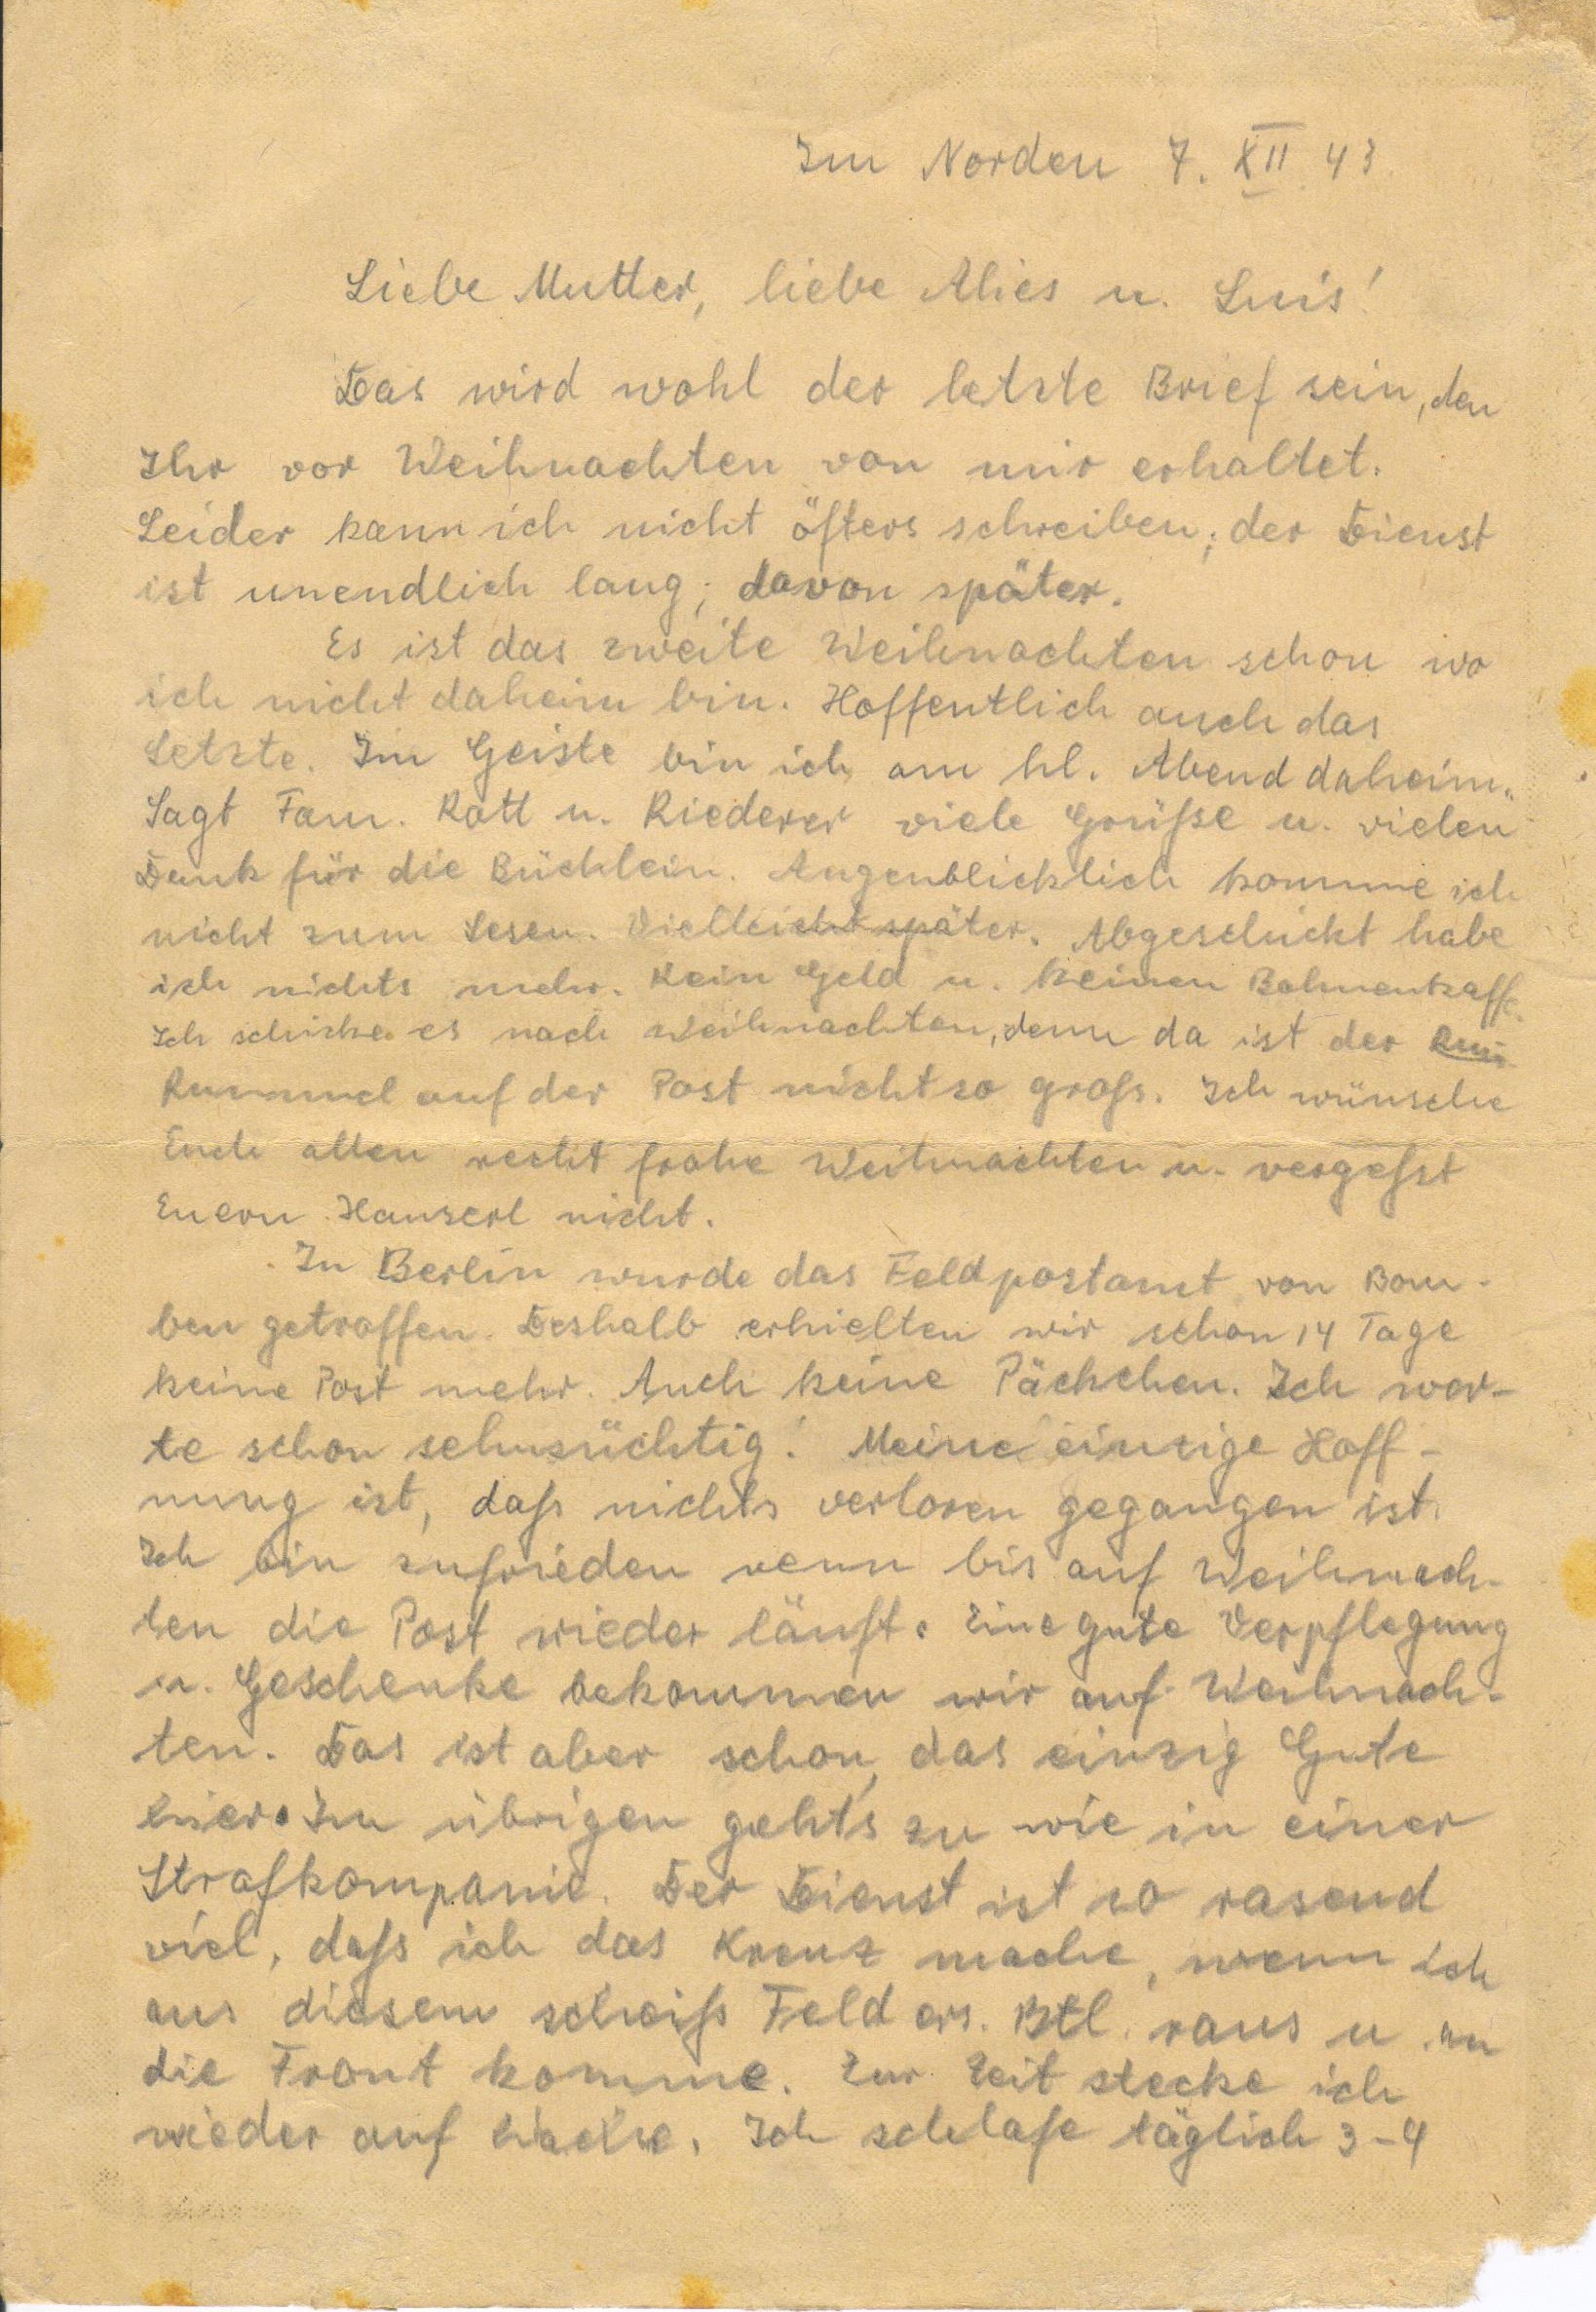 Im Norden 7. XII 43.
Liebe Mutter, liebe Alies u. Luis!
Das wird wohl der letzte Brief sein, den
Ihr vor Weihnachten von mir erhaltet.
Leider kann ich nicht öfters schreiben; der Dienst
ist unendlich lang; davon später.
Es ist das zweite Weihnachten schon wo
ich nicht daheim bin. Hoffentlich auch das
Letzte. Im Geiste bin ich am hl. Abend daheim.
Sagt Fam. Rott u. Riederer viele Grüße u. vielen
Dank für die Büchlein. Augenblicklich komme ich
nicht zum Lesen. Vielleicht später. Abgeschickt habe
ich nichts mehr. Kein Geld u. keinen Bohnenkaffe.
Ich schicke es nach Weihnachten, denn da ist der
Rummel auf der Post nicht so groß. Ich wünsche
Euch allen recht frohe Weihnachten u. vergeßt
Euern Hanserl nicht.
In Berlin wurde das Feldpostamt von Bom-
ben getroffen. Deshalb erhielten wir schon 14 Tage
keine Post mehr. Auch keine Päckchen. Ich war-
te schon sehnsüchtig! Meine einzige Hoff-
nung ist, daß nichts verloren gegangen ist.
Ich bin zufrieden wenn bis auf Weihnach-
ten die Post wieder läuft. Eine gute Verpflegung
u. Geschenke bekommen wir auf Weihnach-
ten. Das ist aber schon das einzig Gute
hier. Im übrigen geht's zu wie in einer
Strafkompanie. Der Dienst ist so rasend
viel, daß ich das Kreuz mache, wenn ich
aus diesem scheiß Feld ers. Btl. raus u. an
die Front komme. Zur Zeit stecke ich
wieder auf Wache. Ich schlafe täglich 3-4